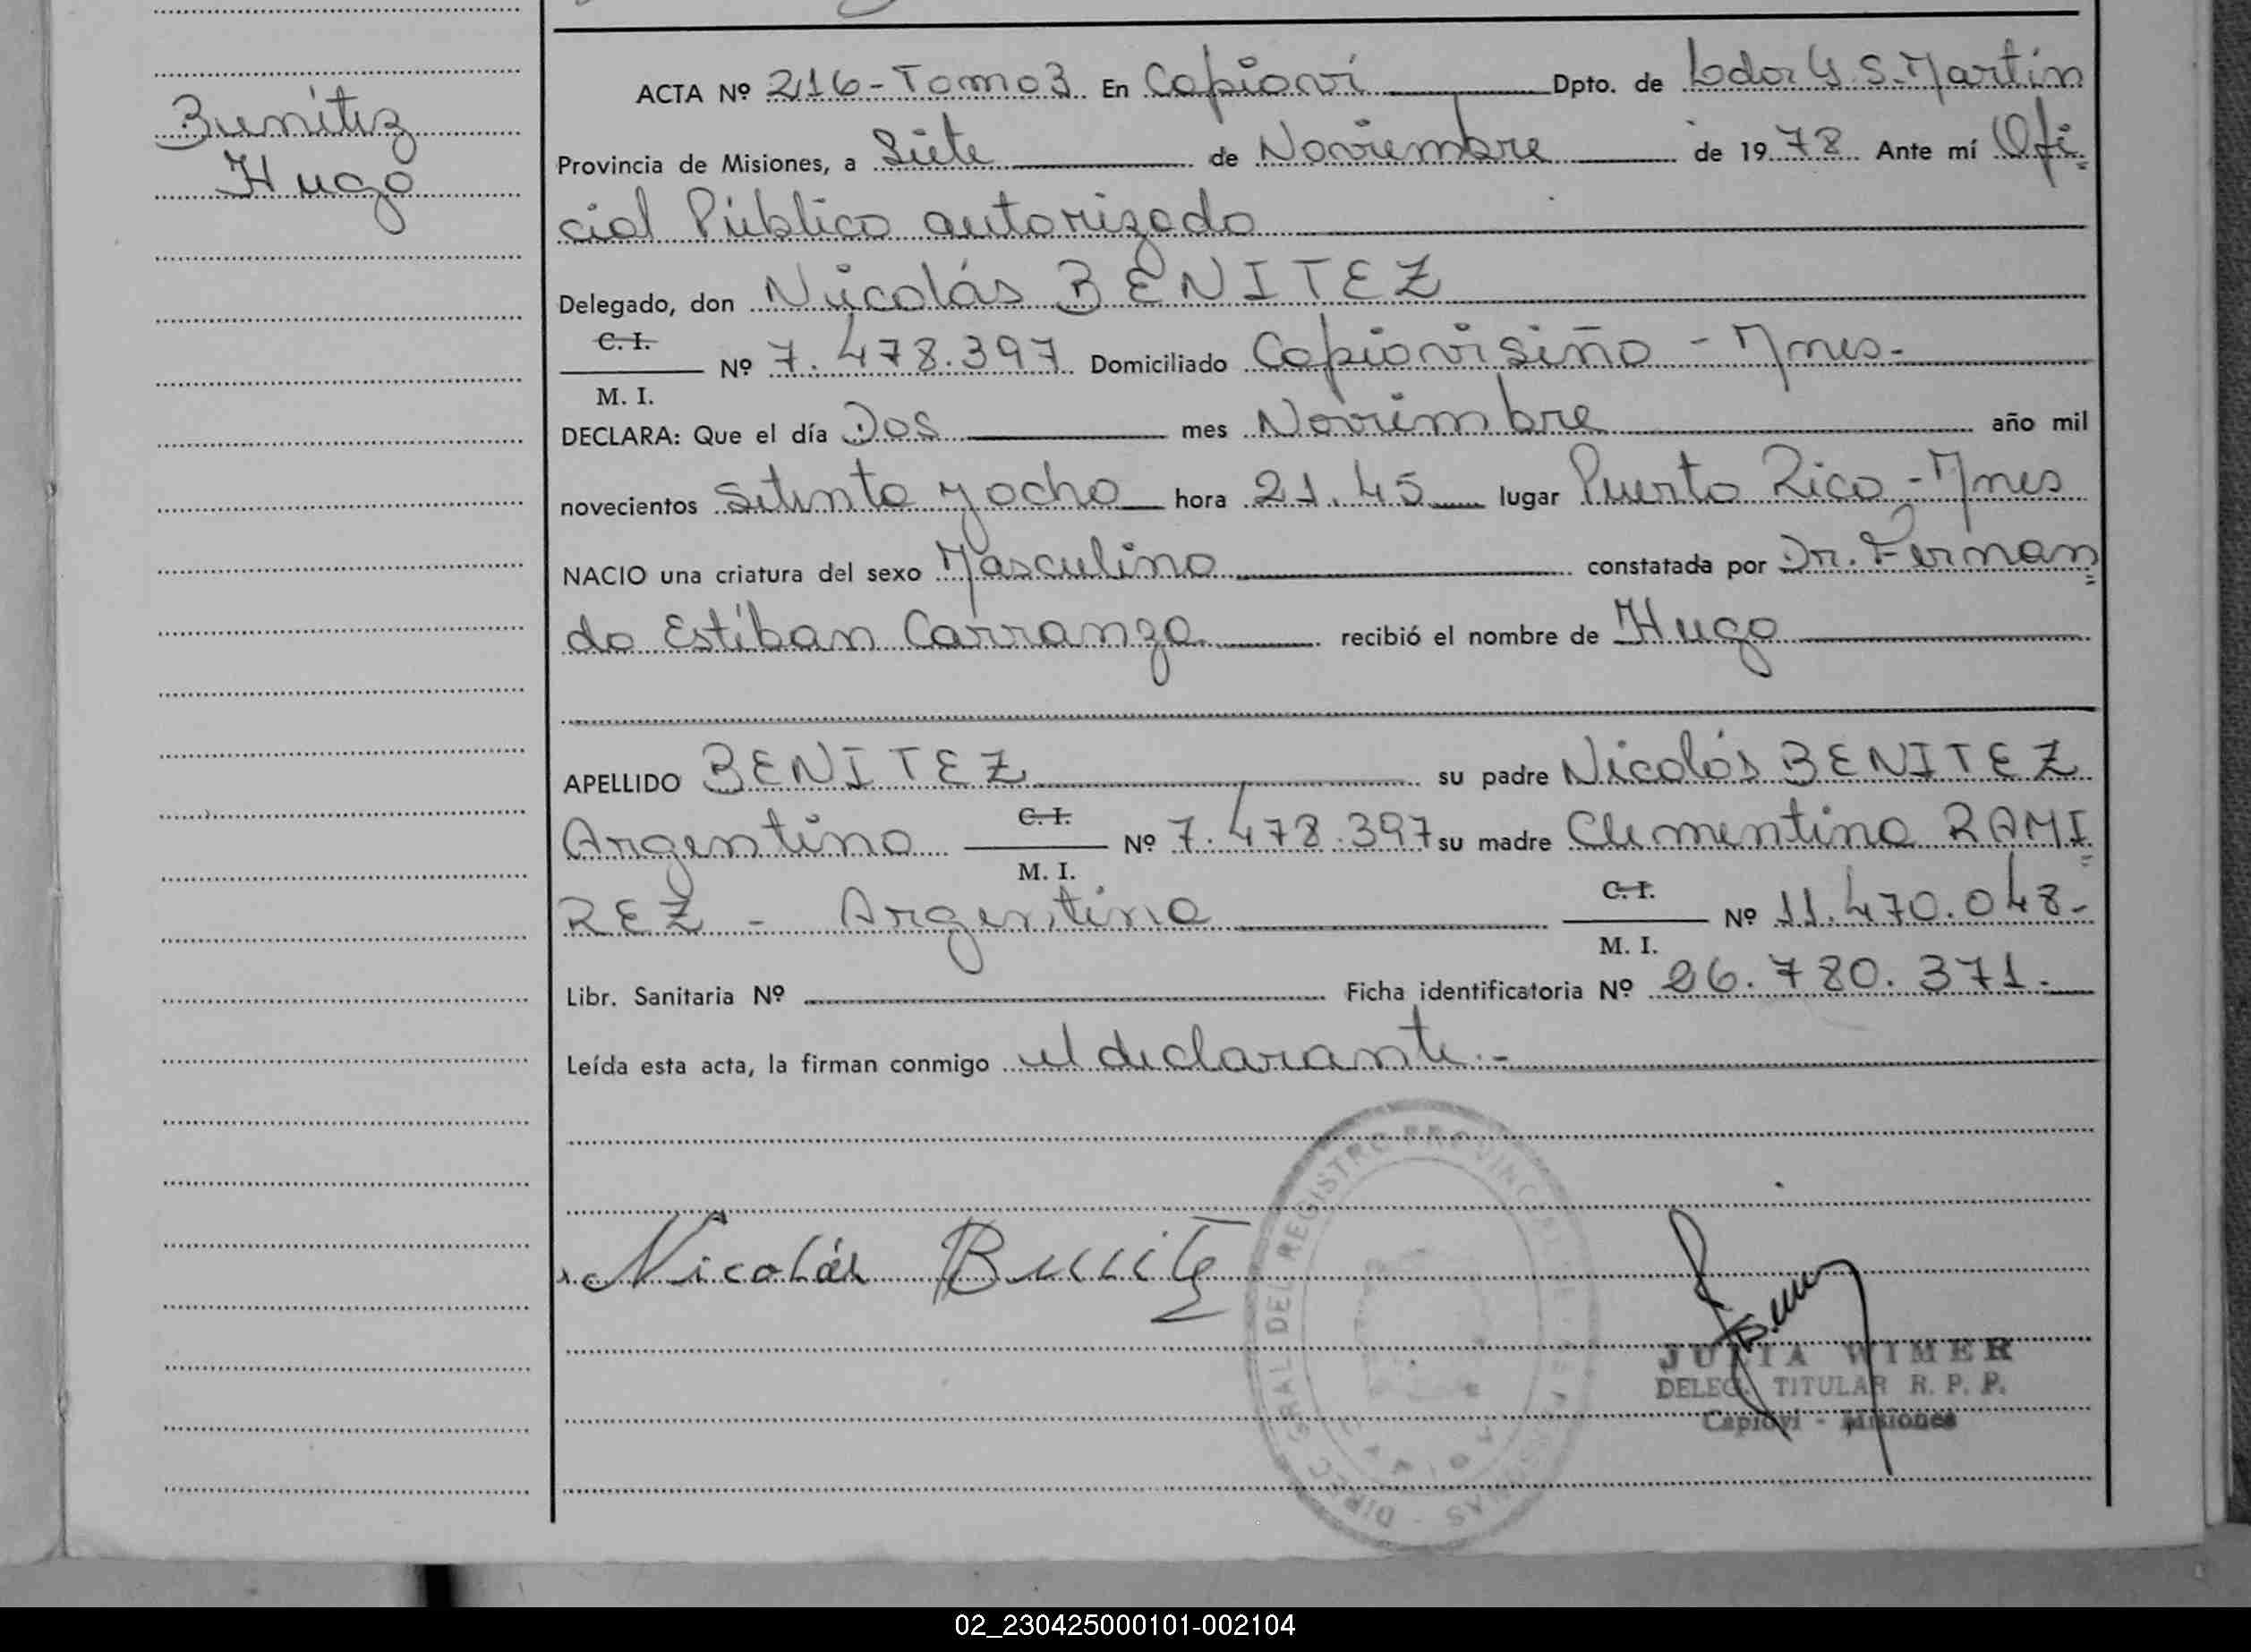 Benitez
Hugo
ACTA Nº 216-Tomo3 En Capioví Dpto. de Ldor G. S. Martin
Provincia de Misiones, a Siete de Noviembre de 1978 Ante mí Ofi
cial Público autorizado
Delegado, don Nicolás BENITEZ
C. I.
M. I. Nº 7.478.397 Domiciliado Capiovisiño - Mnes-
DECLARA: Que el día Dos mes Noviembre año mil
novecientos setenta y ocho hora 21.45 lugar Puerto Rico - Mnes
NACIO una criatura del sexo Masculino constatada por Dr. Fernan
do Estéban Carranza recibió el nombre de Hugo
APELLIDO BENITEZ su padre Nicolás BENITEZ
Argentino C. I. M. I. Nº 7.478.397 su madre Clementina RAMI
REZ - Argentina C. I. M. I. Nº 11.470.048-
Libr. Sanitaria Nº Ficha identificatoria Nº 26.780.371.-
Leída esta acta, la firman conmigo el declarante.-
Nicolás Benitez
DIREC. GRAL DEL REGISTRO PROVINCIAL DE LAS PERSONAS
CAPIOVI
JULIA WIMER
DELEG. TITULAR R. P. P.
Capioví - Misiones
02_230425000101-002104